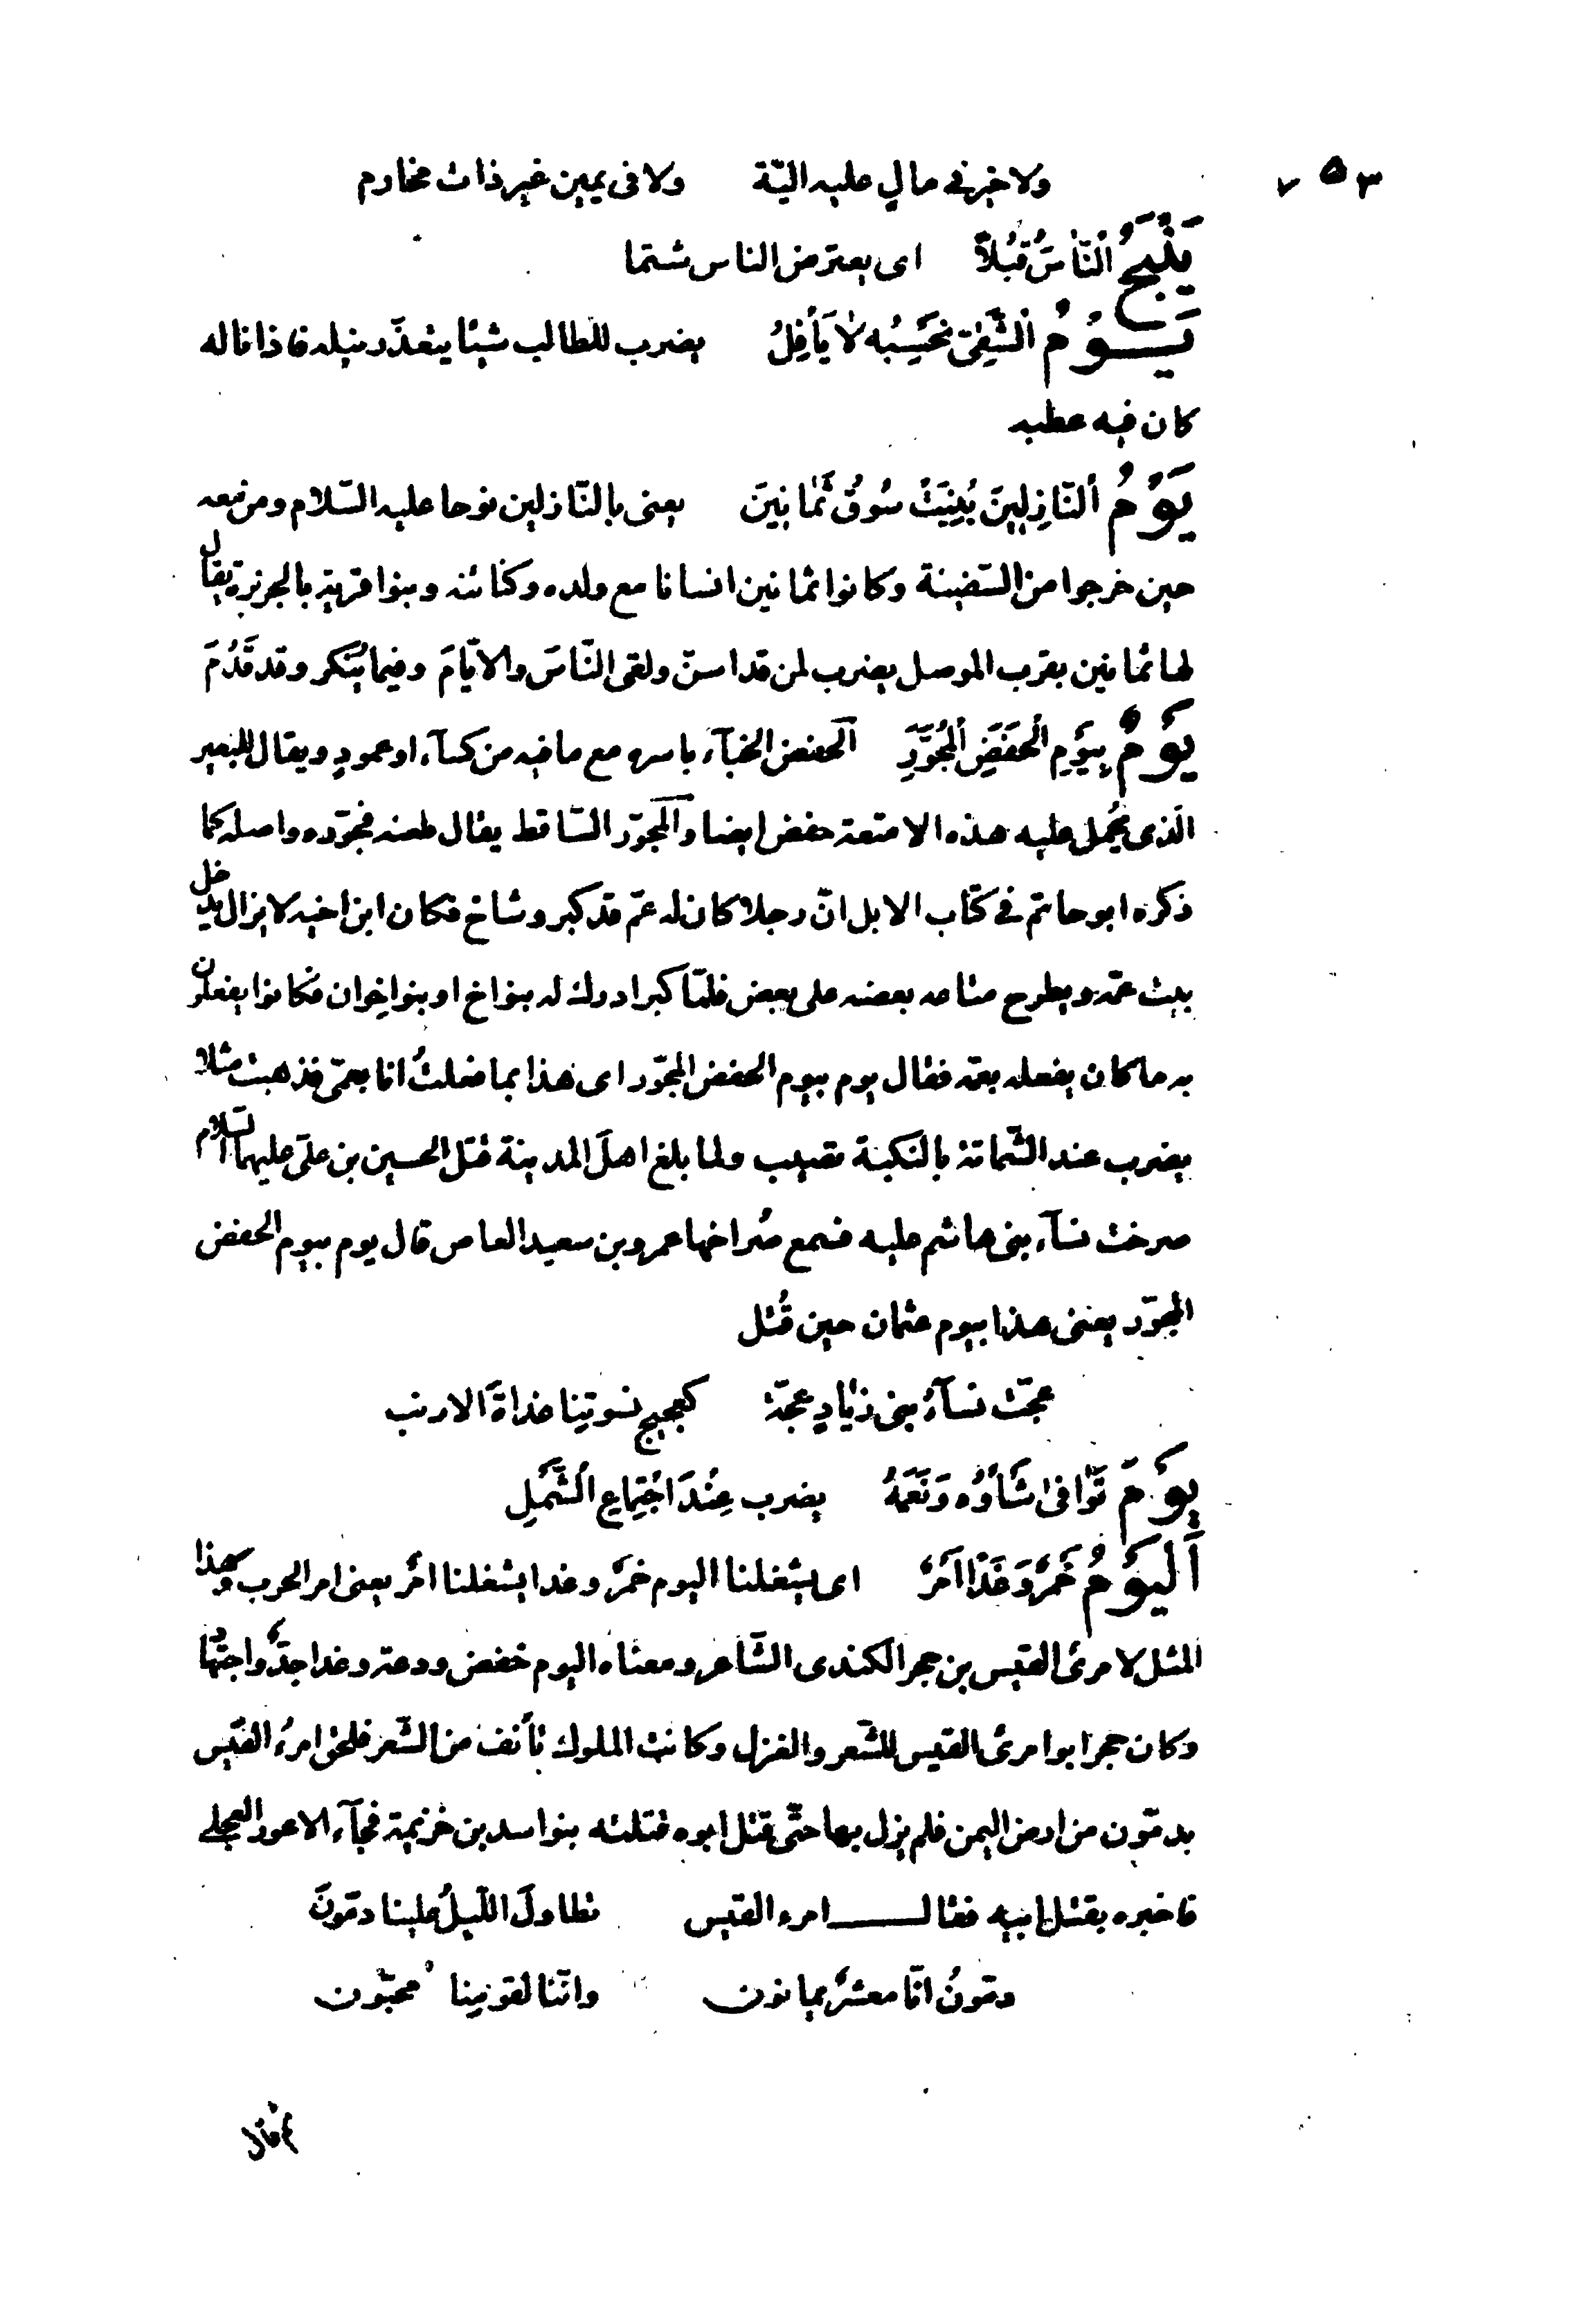 ٧٥٣
ولا خير في مال عليه اليّة ولا في يمين غير ذات مخارم
يَنْبَحُ النّاسَ قُبُلًا اى يعترض الناس شتما
يَوْمُ الشَّقِىّ نَحْسُبُه لاٰ يَأْفِلُ يضرب للطالب شيئا يتعذّر نيله فاذا ناله
كان فيه عطبه
يَوْمُ النّازِلِينَ بُنِيَتْ سُوقُ ثَمٰانِينَ يعنى بالنّازلين نوحا عليه السّلام ومن تبعه
حين خرجوا من السّفينة وكانوا ثمانين انسانا مع ولده وكنائنه وبنوا قرية بالجزيرة يقال
لها ثمانين بقرب الموصل يضرب لمن قد اسنّ ولقى النّاسَ والايّامَ وفيما يُنكر وقد قَدُمَ
يَوْمٌ بِيَوْمِ الْحَفَضِ الْمُجَوَّرِ الحفض الخبآء باسره مع ما فيه من كسآء او عمودٍ ويقال للبعير
الّذى يُحمل عليه هذه الامتعة حفض ايضا والمجوّر السّاقط يقال طعنه فجوّره واصله كما
ذكره ابو حاتم في كتاب الابل انّ رجلا كان له عمّ قد كبر وشاخ فكان ابن اخيه لا يزال يدخل
بيت عمّه ويطرح متاعه بعضه على بعض فلمّا كبر ادرك له بنو اخ او بنو اخوان فكانوا يفعلون
به ما كان يفعله بعمّه فقال يوم بيوم الحفض المجوّر اى هذا بما فعلتُ انا بعمّى فذهبت مثلا
يضرب عند الشّماتة بالنكبة تصيب ولما بلغ اهلَ المدينة قتل الحسين بن علىّ عليهما السّلام
صرخت نسآء بنى هاشم عليه فسمع صُراخها عمرو بن سعيد العاص قال يوم بيوم الحفض
المجوّر يعنى هذا بيوم عثمان حين قُتل
عجّت نسآءُ بنى زيادٍ عجّة كعجيج نسوتنا غداةَ الارنب
يَوْمَ تَوٰافىٰ شَأْوُه وَنَعَمُهُ يضرب عِنْدَ اجْتِماعِ الشَّمْلِ
اَلْيَوْمُ خَمْرٌ وَغَدًا اَمْرٌ اى يشغلنا اليوم خمرٌ وغدا يشغلنا امر يعنى امر الحرب وهذا
المثل لامرئ القيس بن حجر الكندى الشّاعر ومعناه اليوم خفض ودعة وغدا جدٌّ واجتهاد
وكان حجر ابو امرئ القيس للشّعر والغزل وكانت الملوك تأنف من الشّعر فلحق امرءُ القيس
بدمّون من ارض اليمن فلم يزل بها حتّى قتل ابوه قتلته بنو اسد بن خزيمة فجآء الاعور العجلى
فاخبره بقتل ابيه فقال امرء القيس تطاولَ اللّيلُ علينا دمّونَ
دمّونُ انّا معشرٌ يمانون وانّنا لقومنا محبّون